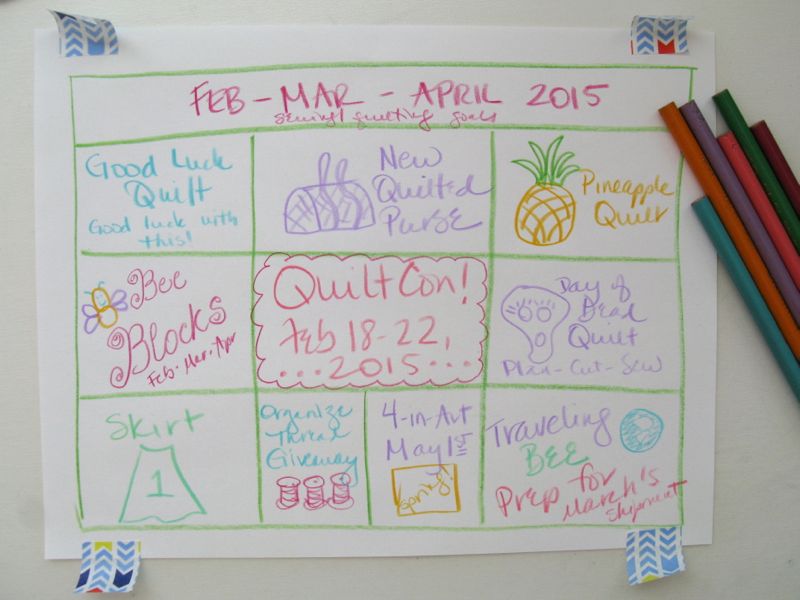 FEB - MAR - APRIL 2015
sewing/quilting goals
Good Luck
Quilt
Good luck with
this!
New
Quilted
Purse
Pineapple
Quilt
Bee
Blocks
Feb. Mar. Apr
QuiltCon!
Feb 18-22,
...2015...
Day of
Dead
Quilt
Plan-Cut-Sew
Skirt
1
Organize
Thread
Giveaway
4-in-Art
May 1st
Spring!
Traveling
BEE
Prep for
March's
Shipment